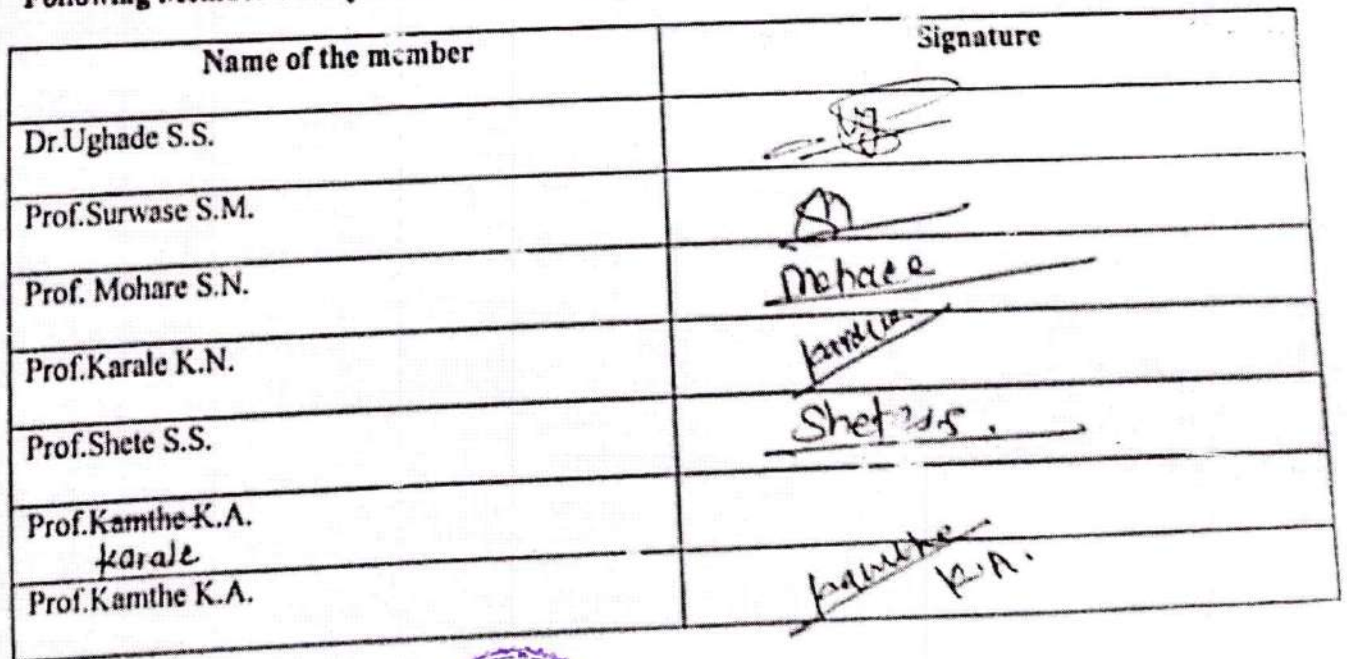 Name of the member Signature
Dr.Ughade S.S.
Prof.Surwase S.M.
Prof. Mohare S.N. Mohare
Prof.Karale K.N. Karale
Prof.Shete S.S. Shete
Prof.Kamthe K.A.
Karale
Prof.Kamthe K.A. Kamthe
K.A.